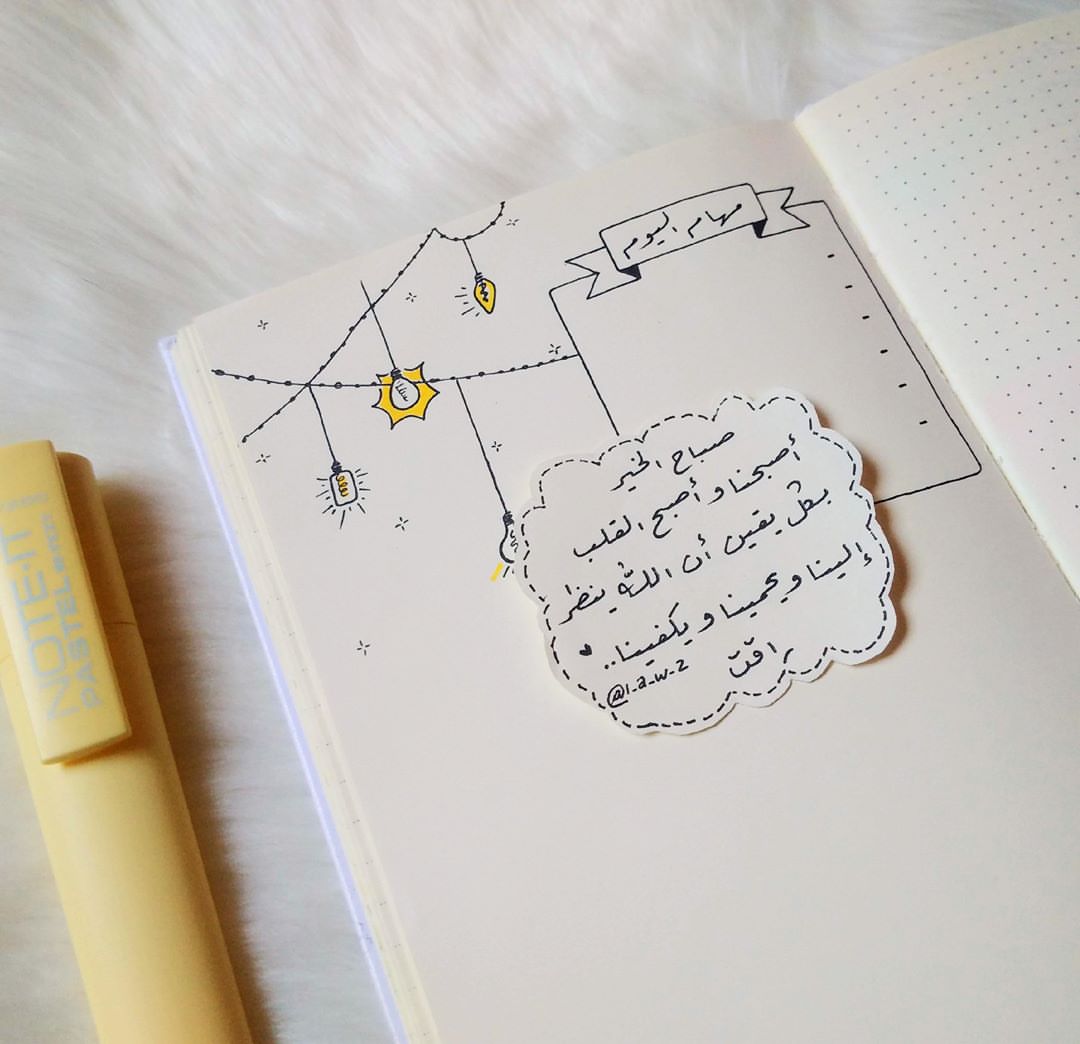 مهام اليوم
صباح الخير
أصبحنا و أصبح القلب
بكل يقين أن الله ينظر
إلينا و يحمينا و يكفينا..♥
@l_a_w_z
NOTE-IT
PASTEL